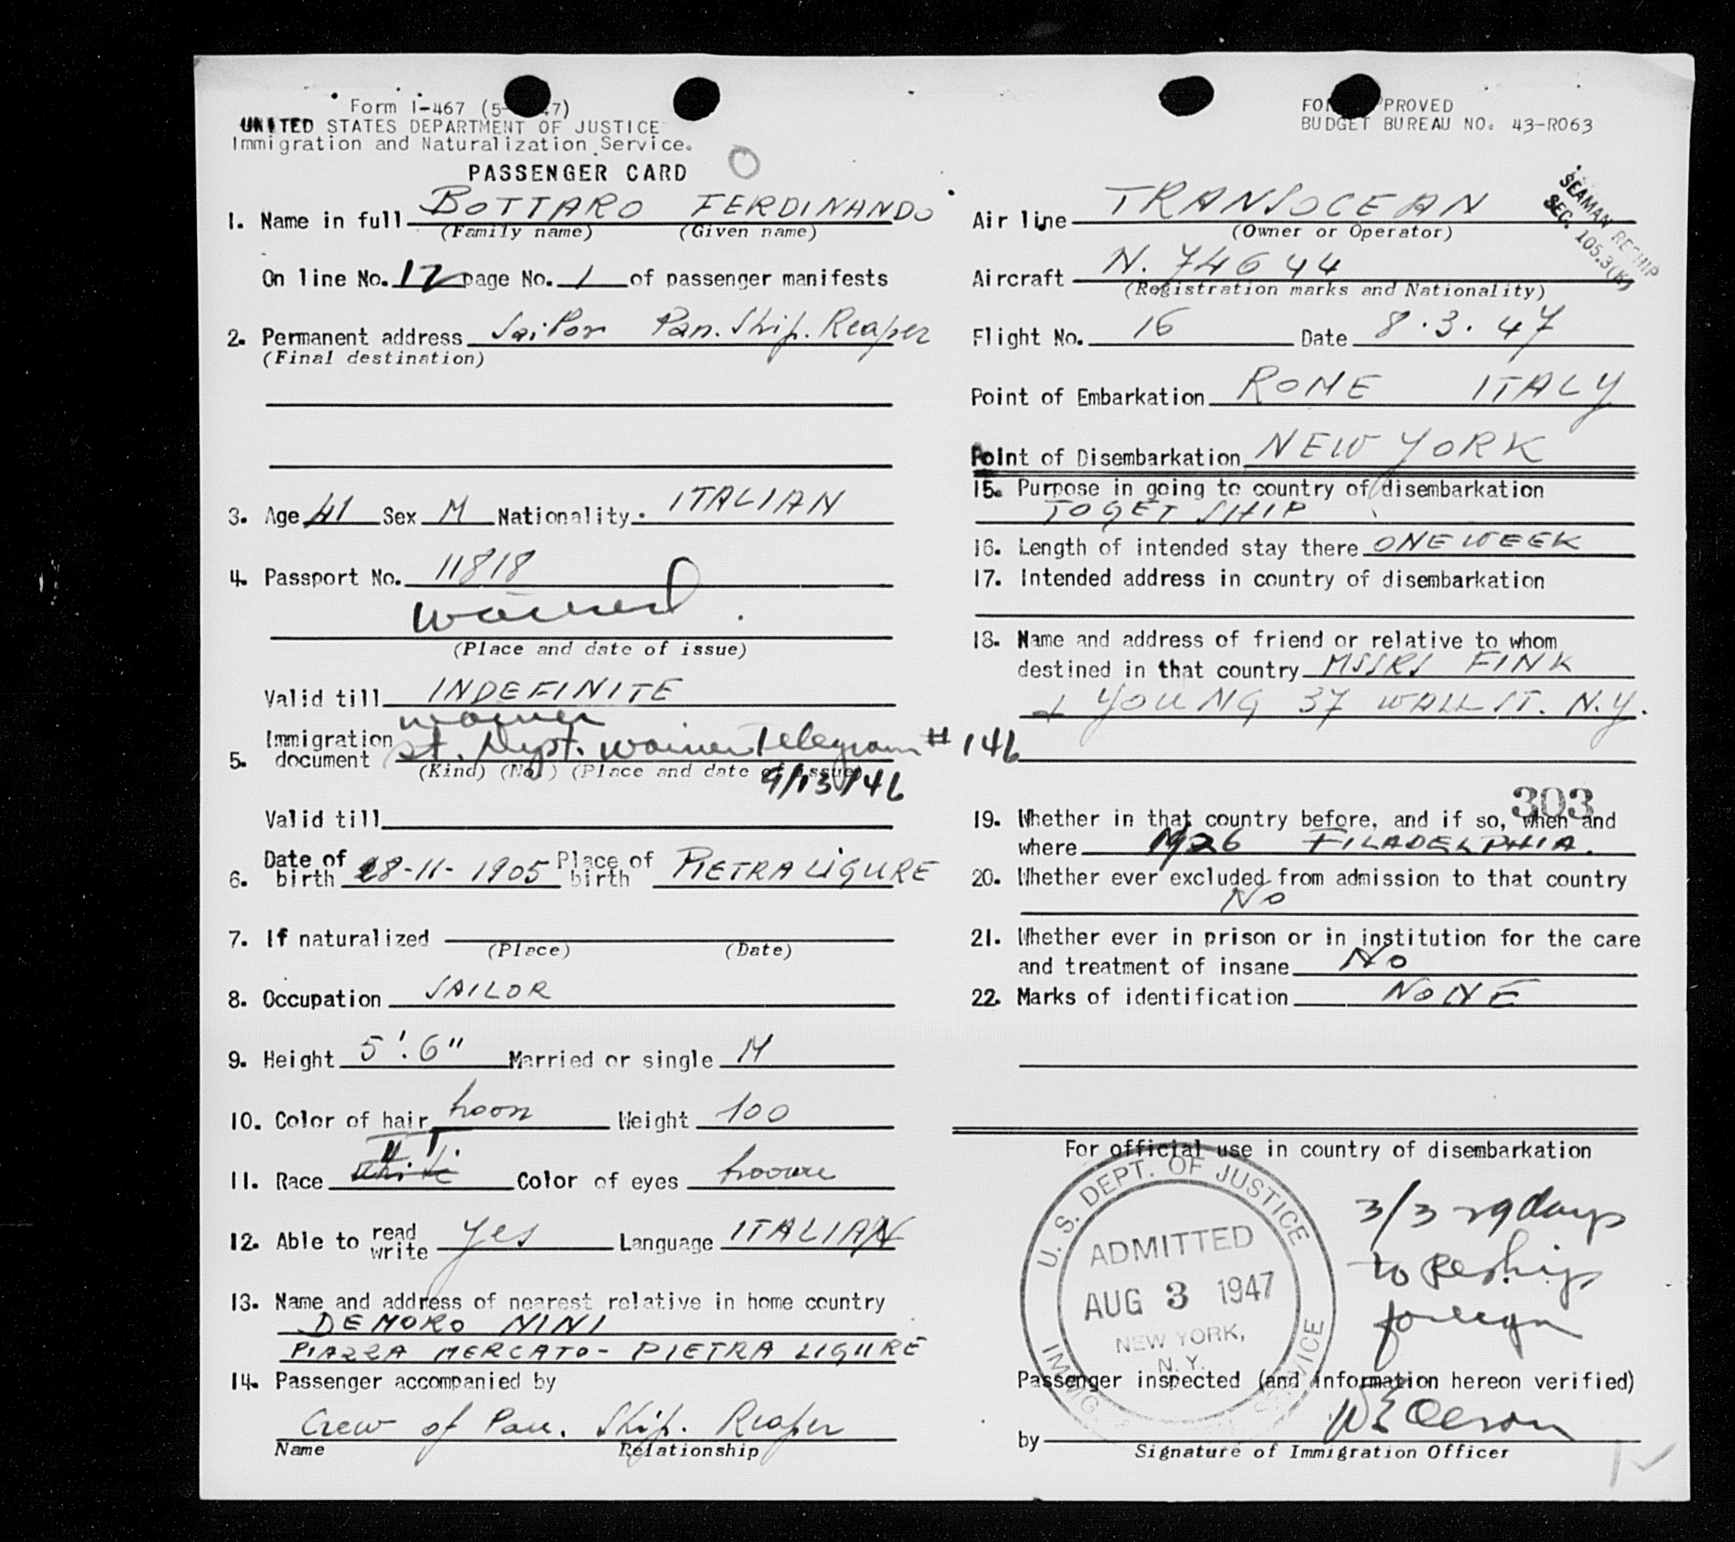 Form I-467 (5- 47)
UNITED STATES DEPARTMENT OF JUSTICE
Immigration and Naturalization Service.
PASSENGER CARD
FORM APPROVED
BUDGET BUREAU NO. 43-R063
SEAMAN RESHIP
SEC. 105.3(K)
1. Name in full BOTTARO FERDINANDO
(Family name) (Given name)
On line No. 12 page No. 1 of passenger manifests
2. Permanent address Sailor Pan. Ship. Reaper
(Final destination)
3. Age 41 Sex M Nationality. ITALIAN
4. Passport No. 11818
Waived.
(Place and date of issue)
Valid till INDEFINITE
waiver
5. Immigration document St. Dept. Waiver Telegram # 146
(Kind) (No.) (Place and date of issue)
9/13/46
Valid till
6. Date of birth 28-11-1905 Place of birth PIETRA LIGURE
7. If naturalized
(Place) (Date)
8. Occupation SAILOR
9. Height 5'.6" Married or single M
10. Color of hair Weight 100
11. Race Color of eyes
12. Able to read write yes Language ITALIAN
13. Name and address of nearest relative in home country
DEMORO NINI
PIAZZA MERCATO - PIETRA LIGURE
14. Passenger accompanied by
Crew of Pan. Ship. Reaper
Name Relationship
Air line TRANSOCEAN
(Owner or Operator)
Aircraft N. 74644
(Registration marks and Nationality)
Flight No. 16 Date 8.3.47
Point of Embarkation ROME ITALY
Point of Disembarkation NEW YORK
15. Purpose in going to country of disembarkation
TO GET SHIP
16. Length of intended stay there ONE WEEK
17. Intended address in country of disembarkation
18. Name and address of friend or relative to whom
destined in that country MSSRS FINK
& YOUNG 37 WALL ST. N.Y.
303
19. Whether in that country before, and if so, when and
where 1926 FILADELPHIA.
20. Whether ever excluded from admission to that country
No
21. Whether ever in prison or in institution for the care
and treatment of insane No
22. Marks of identification NONE
For official use in country of disembarkation
U. S. DEPT. OF JUSTICE
ADMITTED
AUG 3 1947
NEW YORK,
N. Y.
IMMIG. SERVICE
3/3 29 days
to Reship
foreign
Passenger inspected (and information hereon verified)
by
Signature of Immigration Officer